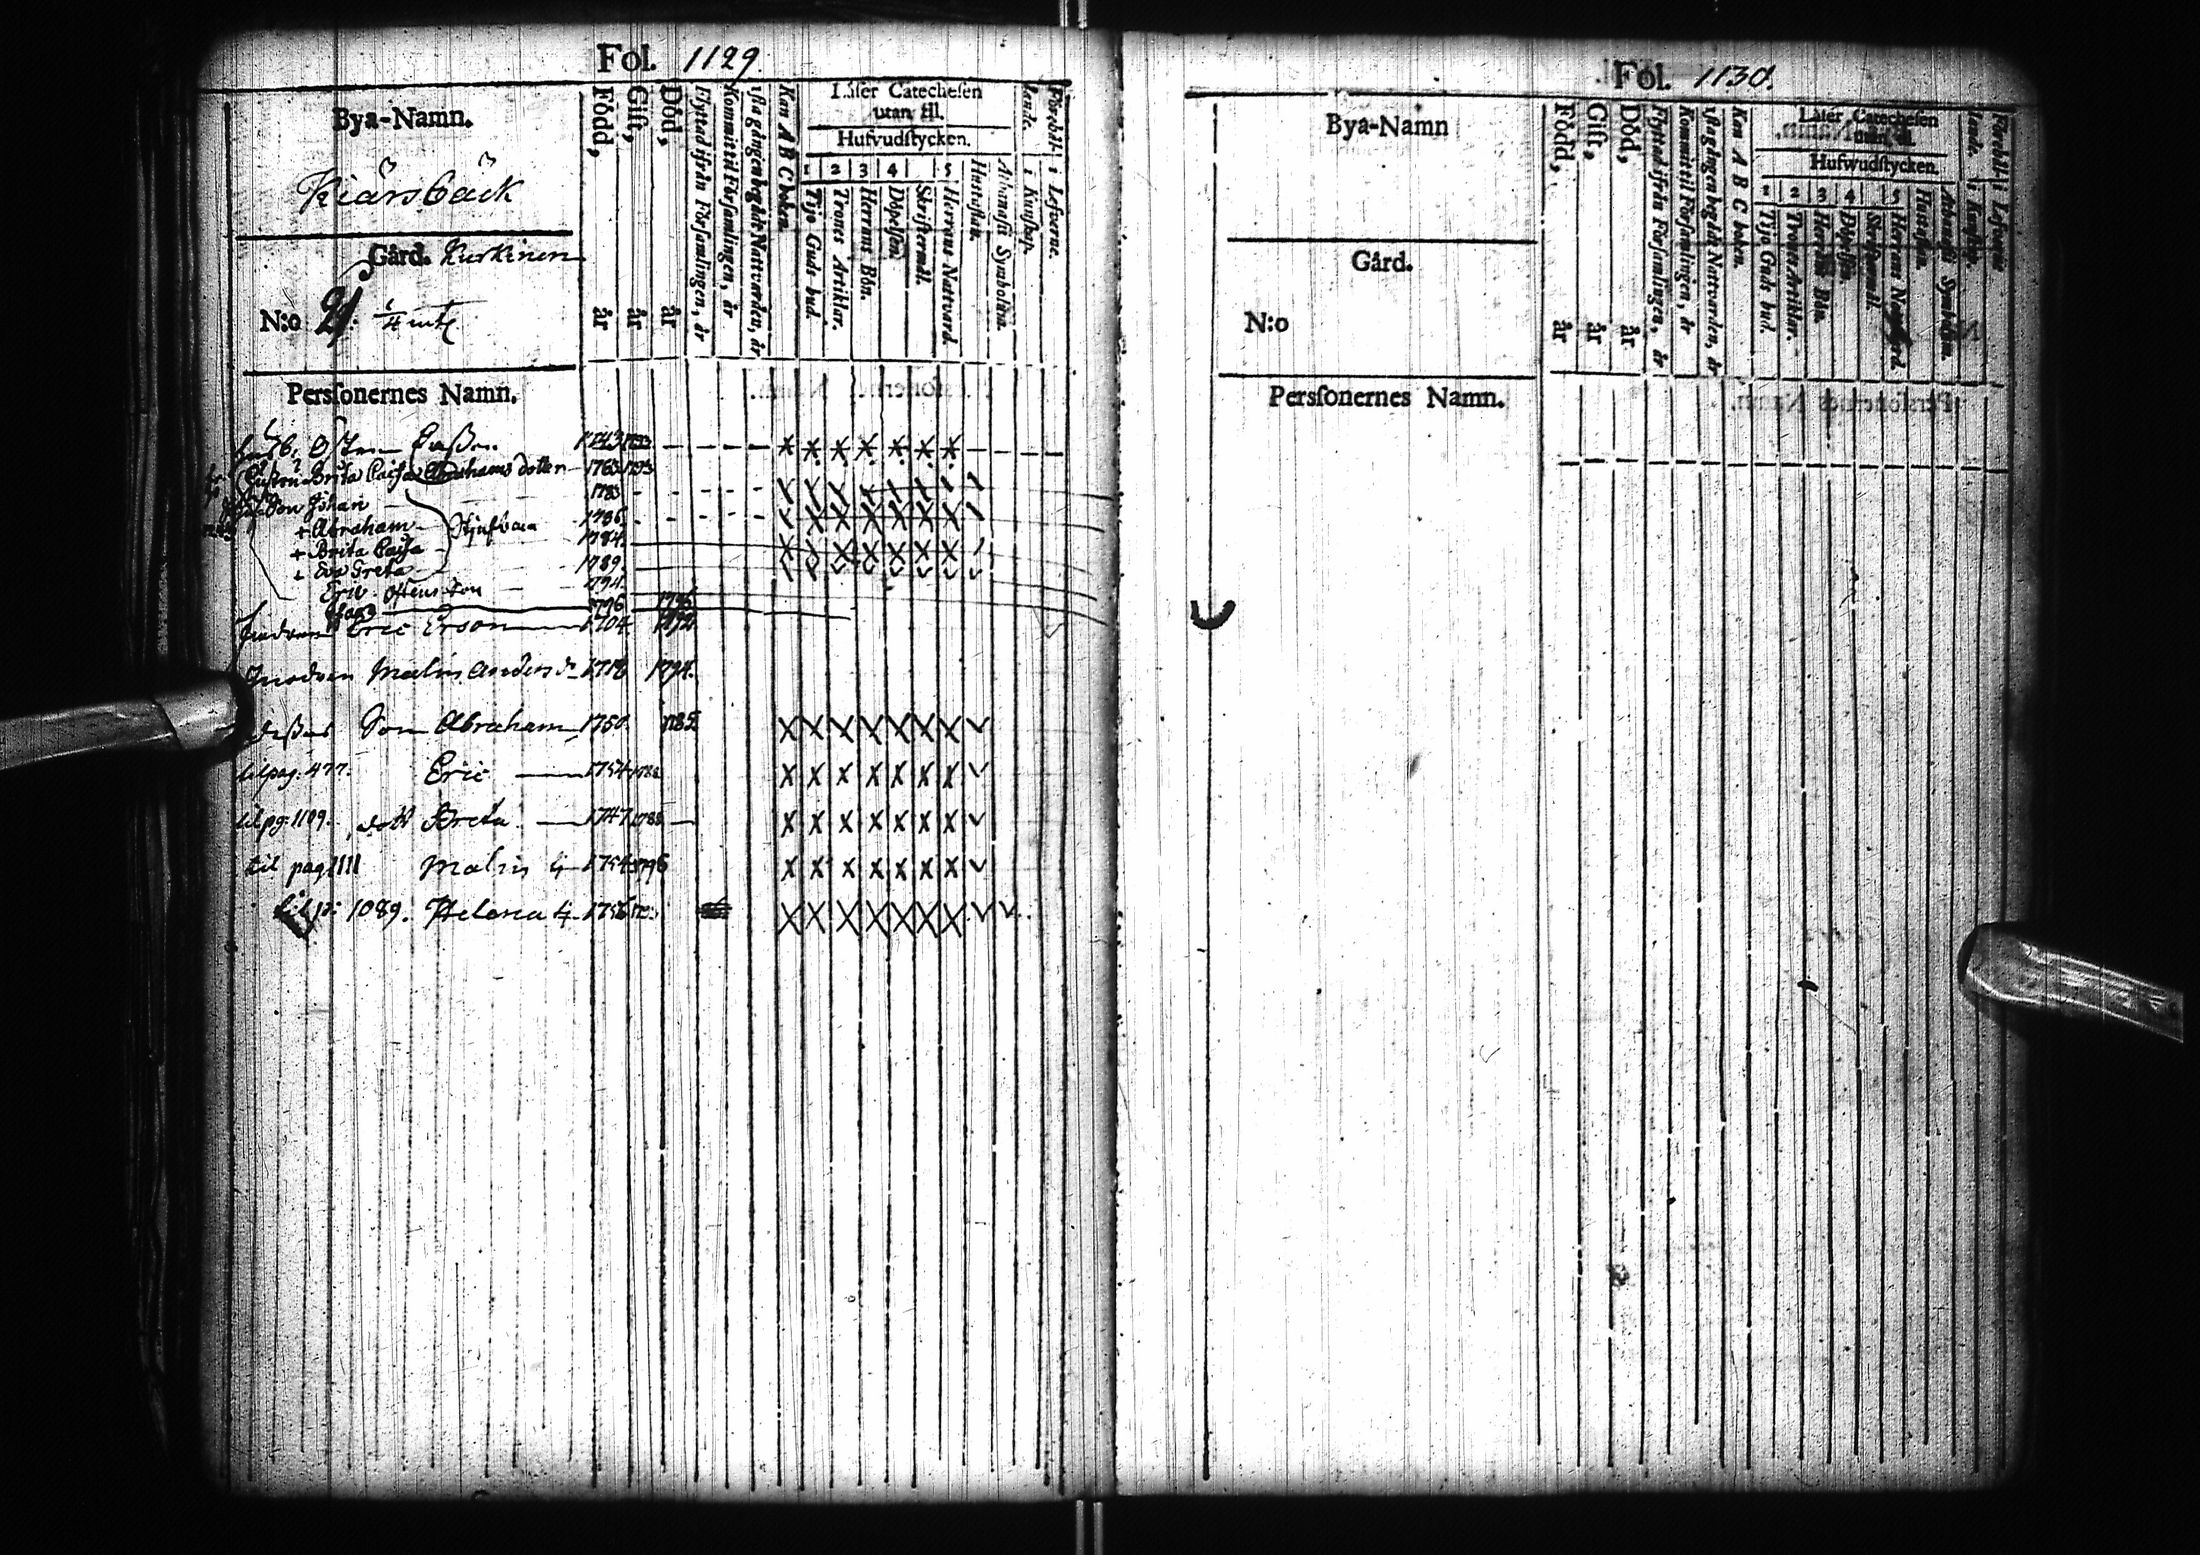 Fol. 1129.
Bya-Namn.
Kiärsbäck
Gård. Kurkinen
N:o 21. 1/4 mtl
Persſonernes Namn.
Född, år
Gift, år
Död, år
Flyttad ifrån Förſamlingen, år
Kommit til Förſamlingen, år
1ſta gången begått Nattvarden, år
Kan A B C boken.
Läſer Catecheſen
utan til.
Hufvudſtycken.
1 2 3 4 5
Tijo Guds bud.
Trones Artiklar.
Herrans Bön.
Döpelſen
Skriftermål.
Herrans Nattvard.
Huſtaflan.
Athanaſii Symbolum.
Förehållande.
i Kunſkap.
i Lefverne.
Östen 1743
Hustru Brita Caisa Abrahams dotter 1763 1793
Son Johan 1783
+ Abraham 1786
+ Brita Caisa 1784.
+ Eva Greta 1789.
Eric Östens son 1794.
1796 1796
Eric Erson 1704 1792
Malin Anders d. 1794.
Son Abraham 1750. 1785
til pag. 477. Eric 1754
til pg: 1109. dott Breta 1747
til pag 1111 Malin 1754 1796
til p: 1089. Helena 1756
Fol. 1130.
Bya-Namn
Gård.
N:o
Persſonernes Namn.
Född, år
Gift, år
Död, år
Flyttad ifrån Förſamlingen, år
Kommit til Förſamlingen, år
1ſta gången begått Nattvarden, år
Kan A B C boken.
Läſer Catecheſen
utan til.
Hufwudſtycken.
1 2 3 4 5
Tijo Guds bud.
Trones Artiklar.
Herrans Bön.
Döpelſen.
Skriftermål.
Herrans Nattvard.
Huſtaflan.
Athanaſii Symbolum.
Förehållande.
i Kunſkap.
i Lefverne